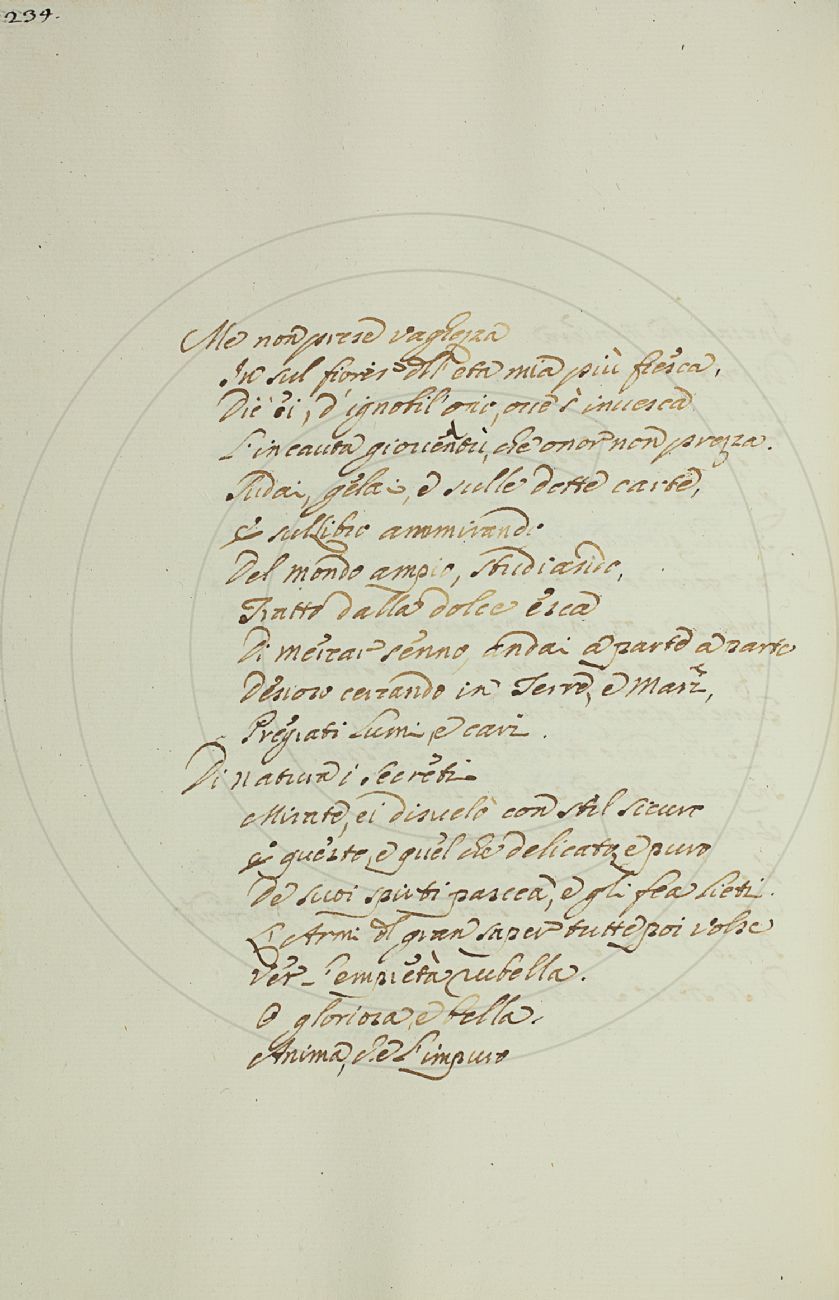 234.
Me non prese vaghezza
In sul fiorir dell'età mia più fresca,
Diè ei, d'ignobil ozio, ove s'invesca
L'incauta gioventù, che onor non prezza.
Sudai, gelai, e sulle dotte carte,
E sul libro ammirando
Del mondo ampio, studiando,
Tratto dalla dolce esca
Di mercar senno, andai a parte a parte
Desioso cercando in Terre, e Mari,
Pregiati lumi, e cari.
Di natura i secreti
Mirate, ei disvelò con stil sicuro
E questo, e quel che delicato, e puro
De suoi spirti pascea, e gli fea lieti.
L'Armi del gran saper tutte poi volse
Ver l'empietà rubella.
O gloriosa, e bella.
Anima, che l'impuro